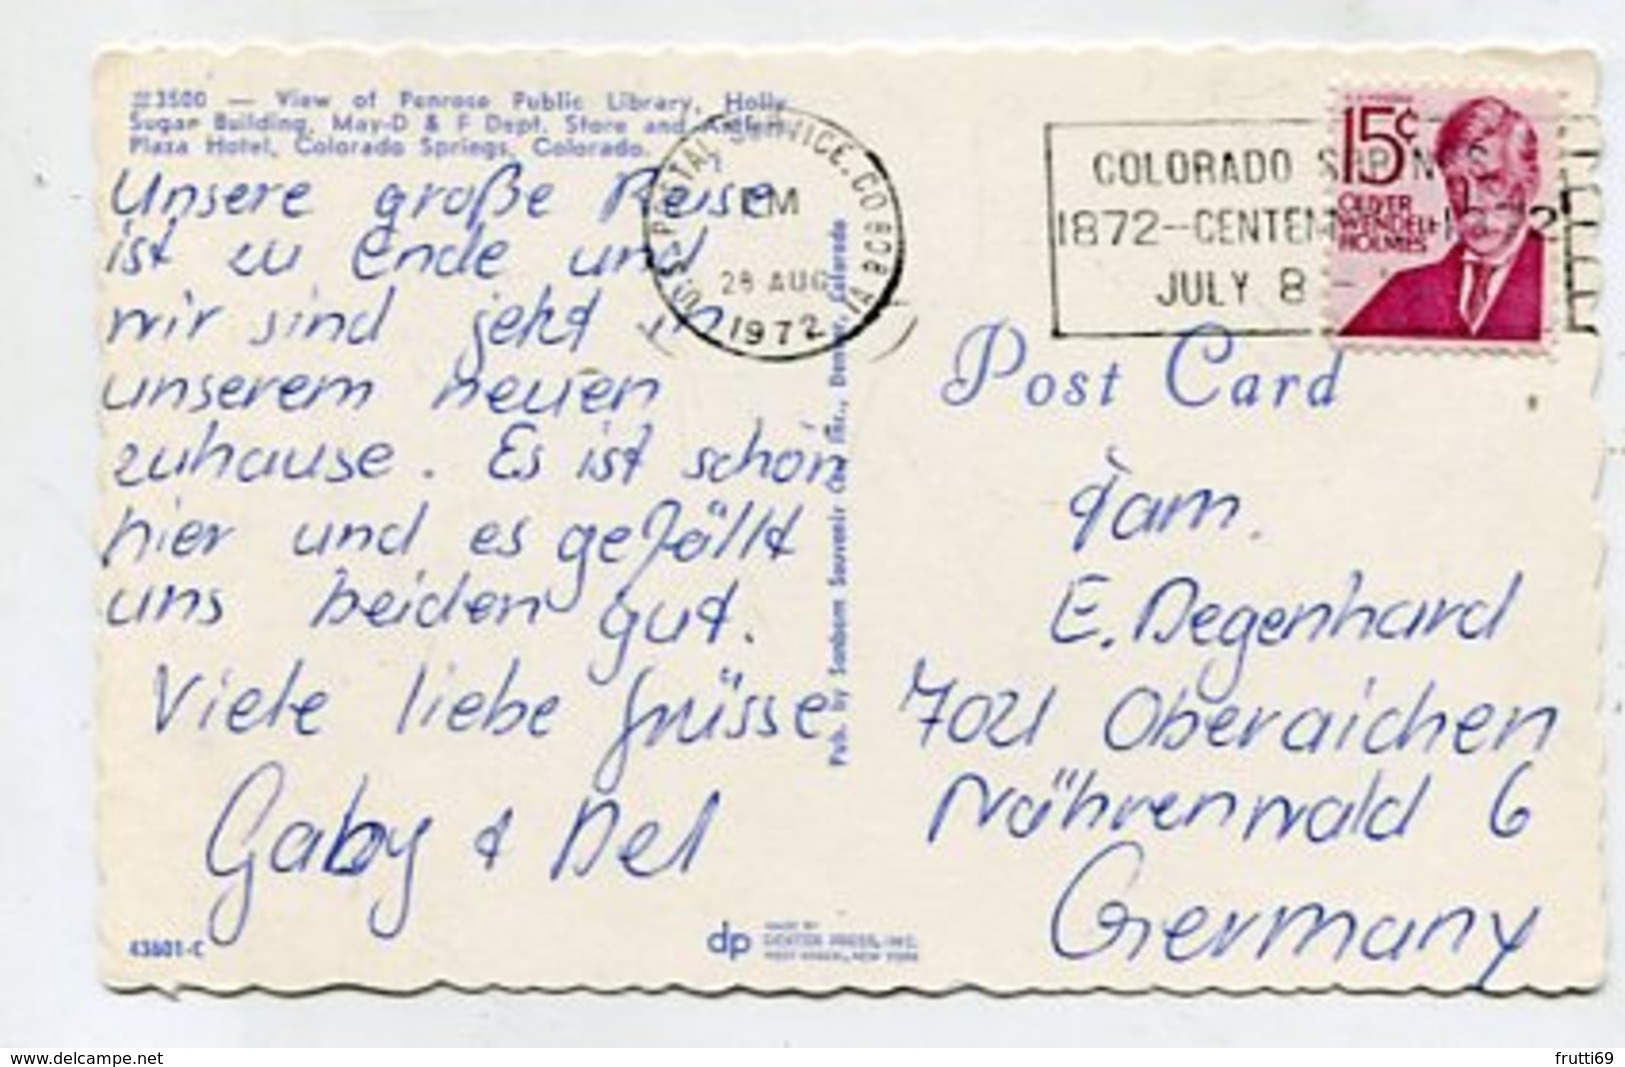 #3500 — View of Penrose Public Library, Holly
Sugar Building, May-D & F Dept. Store and Antlers
Plaza Hotel, Colorado Springs, Colorado.
Unsere große Reise
ist zu Ende und
wir sind jetzt in
unserem neuen
zuhause. Es ist schön
hier und es gefällt
uns beiden gut.
Viele liebe Grüsse
Gaby & Del
43601-C
U.S. POSTAL SERVICE, CO 808
PM
28 AUG
1972
1A
Pub. by Sanborn Souvenir Co., Inc., Denver, Colorado
dp MADE BY
DEXTER PRESS, INC.
WEST NYACK, NEW YORK
COLORADO SPRINGS
1872--CENTENNIAL-1972
JULY 8 -
15¢
OLIVER
WENDELL
HOLMES
Post Card
Fam.
E. Degenhard
7021 Oberaichen
Nährenwald 6
Germany
www.delcampe.net
frutti69